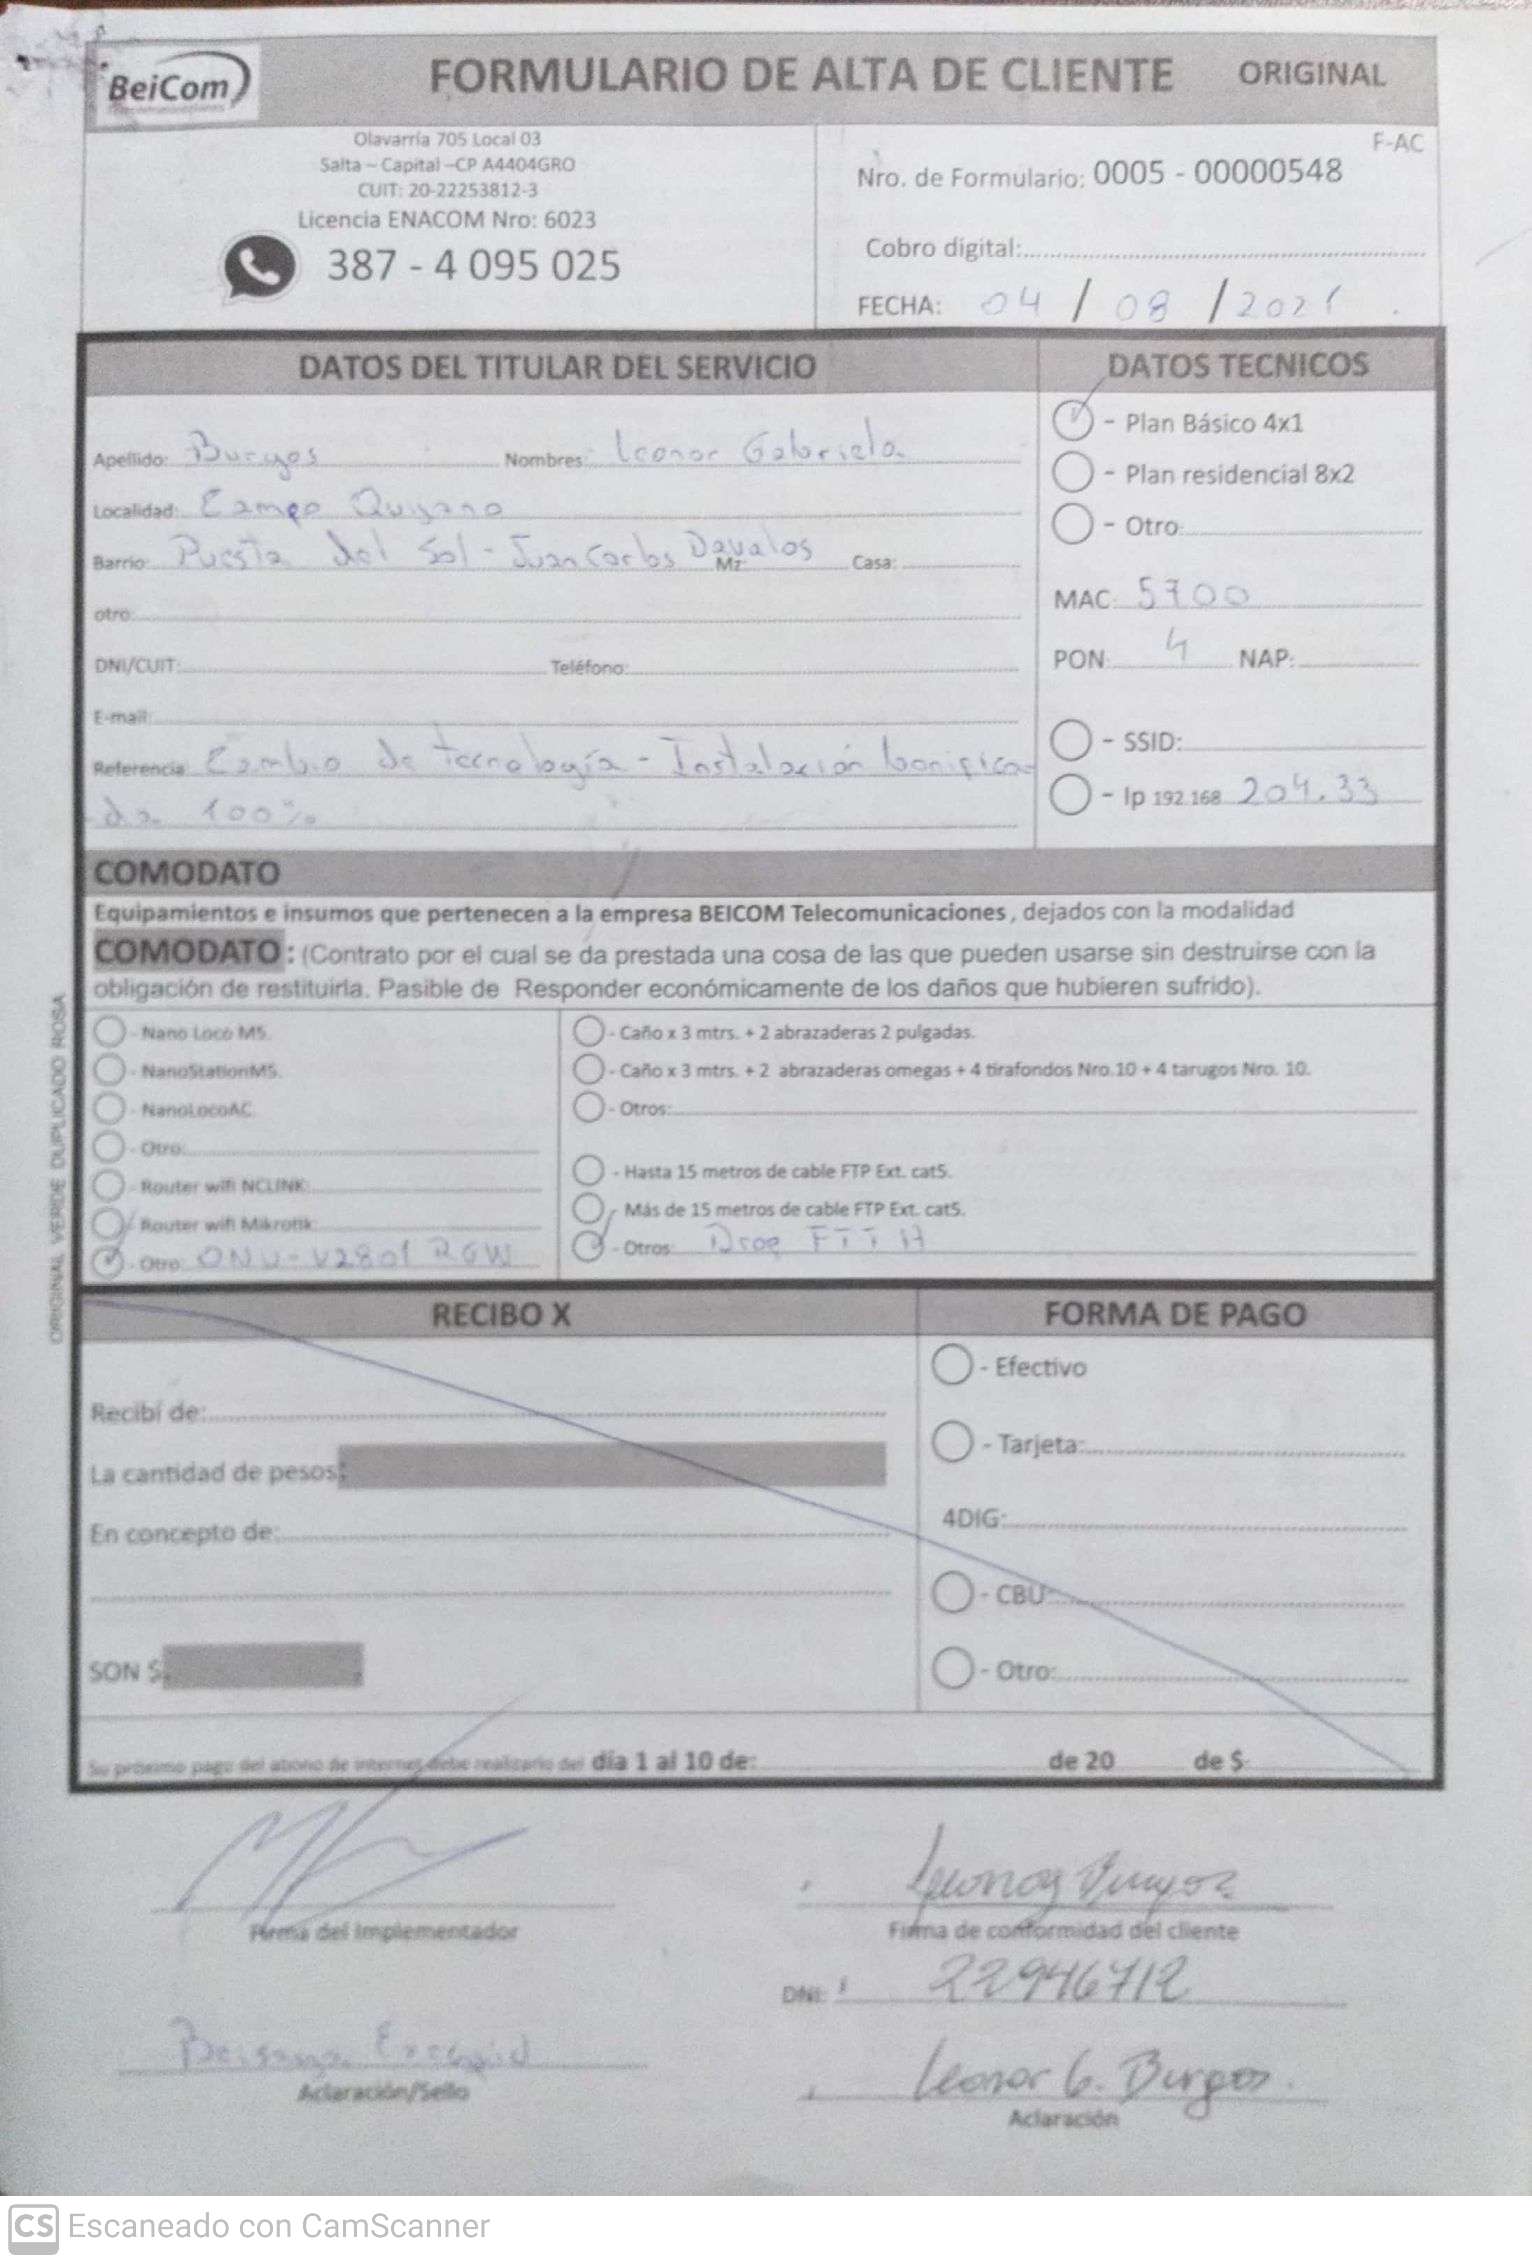 BeiCom
FORMULARIO DE ALTA DE CLIENTE ORIGINAL
Olavarría 705 Local 03
Salta – Capital –CP A4404GRO
CUIT: 20-22253812-3
Licencia ENACOM Nro: 6023
387 - 4 095 025
F-AC
Nro. de Formulario: 0005 - 00000548
Cobro digital:
FECHA: 04 / 08 / 2021
DATOS DEL TITULAR DEL SERVICIO
Apellido: Burgos Nombres: Leonor Gabriela
Localidad: Campo Quijano
Barrio: Puesta del Sol - Juan Carlos Davalos Mz Casa:
otro:
DNI/CUIT: Teléfono:
E-mail:
Referencia: Cambio de tecnología - Instalación bonifica
da 100%
DATOS TECNICOS
- Plan Básico 4x1
- Plan residencial 8x2
- Otro:
MAC: 5700
PON: 4 NAP:
- SSID:
- Ip 192.168 204.33
COMODATO
Equipamientos e insumos que pertenecen a la empresa BEICOM Telecomunicaciones, dejados con la modalidad
COMODATO : (Contrato por el cual se da prestada una cosa de las que pueden usarse sin destruirse con la
obligación de restituirla. Pasible de Responder económicamente de los daños que hubieren sufrido).
- Nano Loco M5.
- NanoStationM5.
- NanoLocoAC.
- Otro:
- Router wifi NCLINK:
- Router wifi Mikrotik:
- Otro: ONU-V2801 RGW
- Caño x 3 mtrs. + 2 abrazaderas 2 pulgadas.
- Caño x 3 mtrs. + 2 abrazaderas omegas + 4 tirafondos Nro.10 + 4 tarugos Nro. 10.
- Otros:
- Hasta 15 metros de cable FTP Ext. cat5.
- Más de 15 metros de cable FTP Ext. cat5.
- Otros: Drop FTTH
ORIGINAL VERDE DUPLICADO ROSA
RECIBO X
Recibí de:
La cantidad de pesos:
En concepto de:
SON $
FORMA DE PAGO
- Efectivo
- Tarjeta:
4DIG:
- CBU:
- Otro:
Su próximo pago del abono de internet debe realizarlo del día 1 al 10 de: de 20 de $
Firma del Implementador
Aclaración/Sello
Leonor Burgos
Firma de conformidad del cliente
DNI: 22946712
Leonor G. Burgos.
Aclaración
CS Escaneado con CamScanner